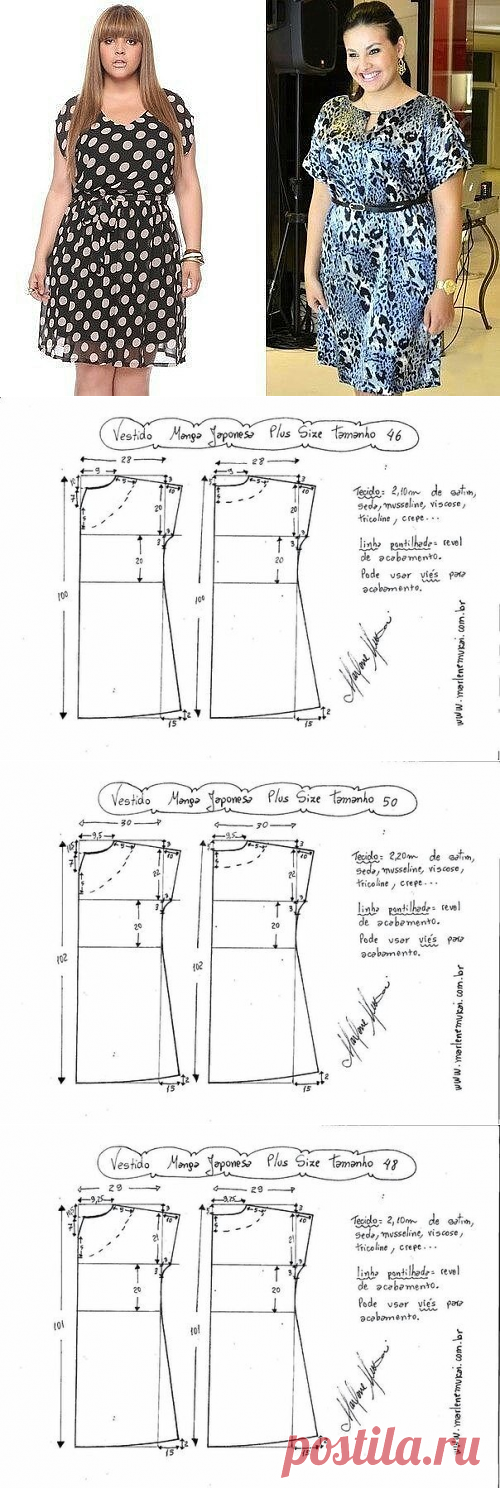 Vestido Manga Japonesa Plus Size Tamanho 46
28
9
3
10
7
5
20
3
20
100
15
2
28
9
3
10
20
3
20
100
15
2
Tecido = 2,10m de cetim,
seda, musseline, viscose,
tricoline, crepe...
linha pontilhada = revel
de acabamento.
Pode usar viés para
acabamento.
www.marlenemukai.com.br
Vestido Manga Japonesa Plus Size Tamanho 50
30
9,5
3
10
7
5
22
3
20
102
15
2
30
9,5
3
10
22
3
20
102
15
2
Tecido = 2,20m de cetim,
seda, musseline, viscose,
tricoline, crepe...
linha pontilhada = revel
de acabamento.
Pode usar viés para
acabamento.
www.marlenemukai.com.br
Vestido Manga Japonesa Plus Size Tamanho 48
29
9,25
3
10
7
5
21
3
20
101
15
2
29
9,25
3
10
21
3
20
101
15
2
Tecido = 2,10m de cetim,
seda, musseline, viscose,
tricoline, crepe...
linha pontilhada = revel
de acabamento.
Pode usar viés para
acabamento.
www.marlenemukai.com.br
postila.ru